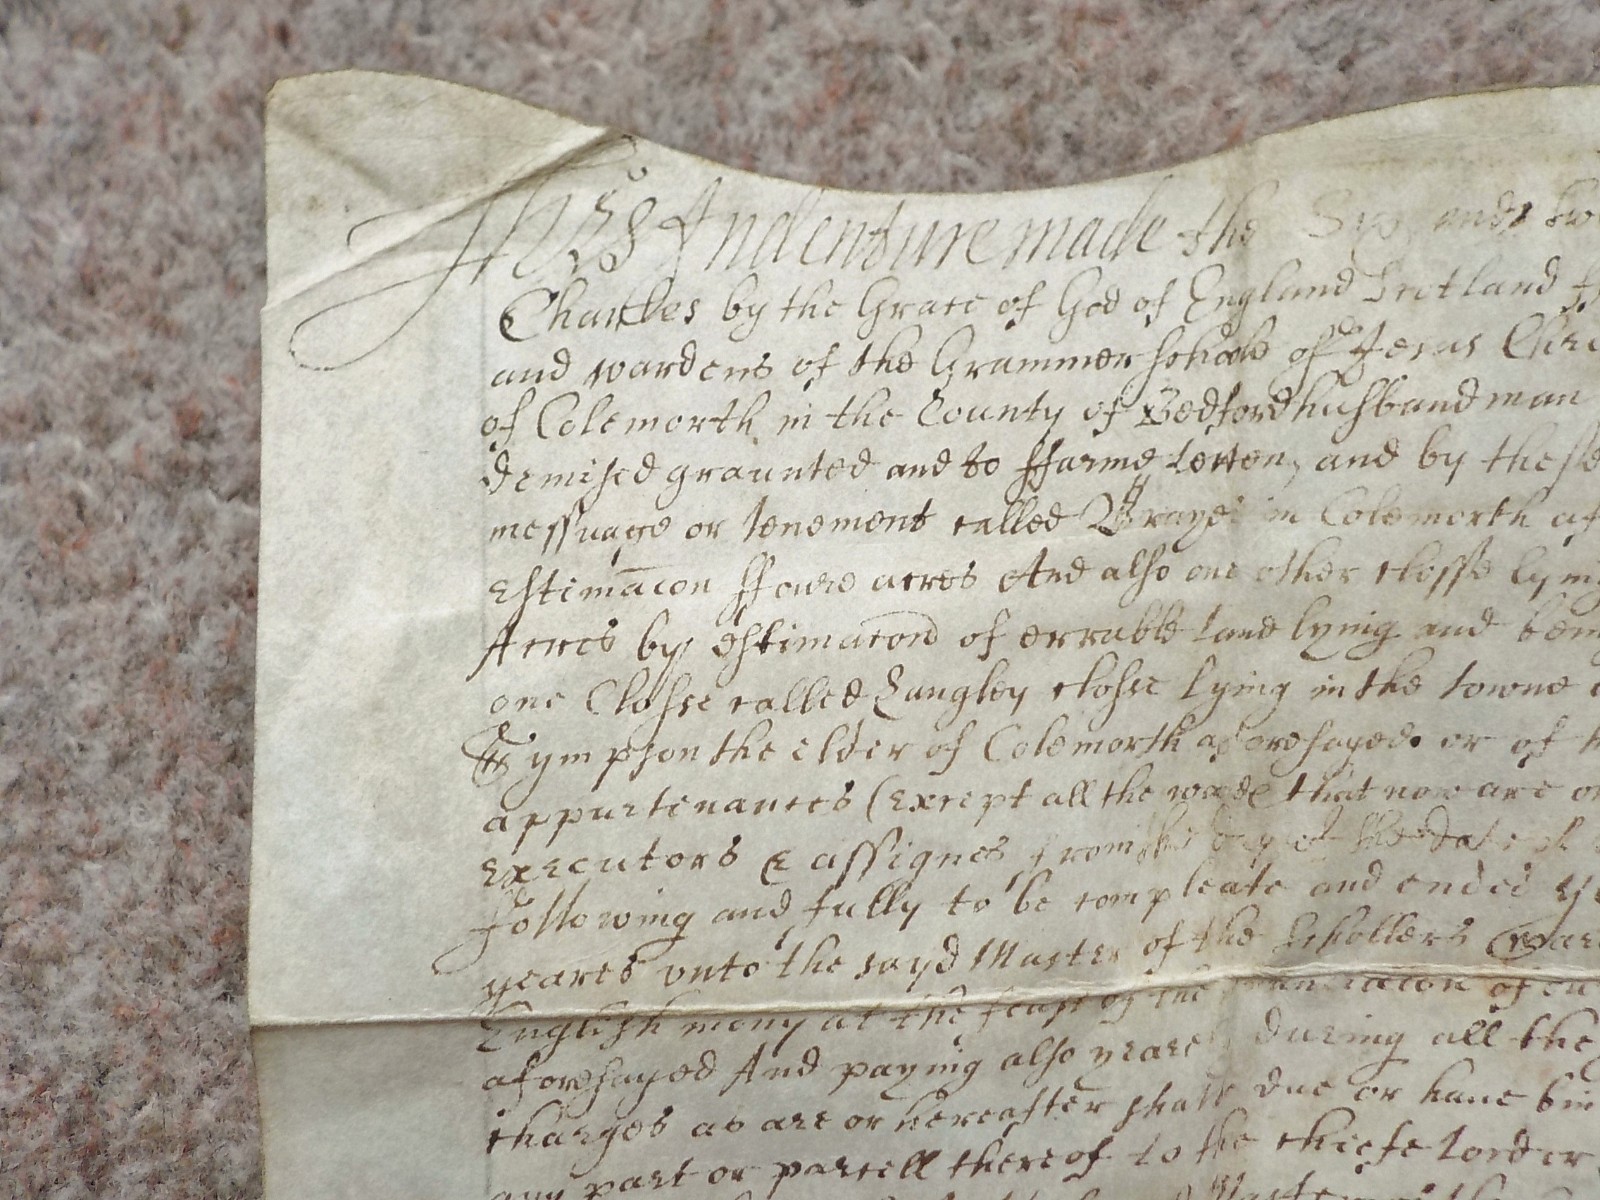 This Indenture made the Six and tw
Charles by the Grace of God of England Scotland ff
and wardens of the Grammer schoole of Jesus Chri
of Colemorth in the County of Bedford husbandman
demised graunted and to ffarme letten, and by these
messuage or tenement called Brayes in Colemorth af
estimacon ffowre acres And also one other closse lying
Acres by estimacon of errable land lying and bein
one Closse called Langley closse lying in the towne
Sympson the elder of Colemorth aforesayed or of
appurtenances (Except all the woode that now are or
executors & assignes from the day of the date
following and fully to be compleate and ended
yeares unto the sayd Master of the Schollers
English mony at the feast of the annunciacon of ou
aforesayed And paying also yeare during all the
charges as are or hereafter shall due or have bin
any part or parcell thereof to the chiefe lord or
Master